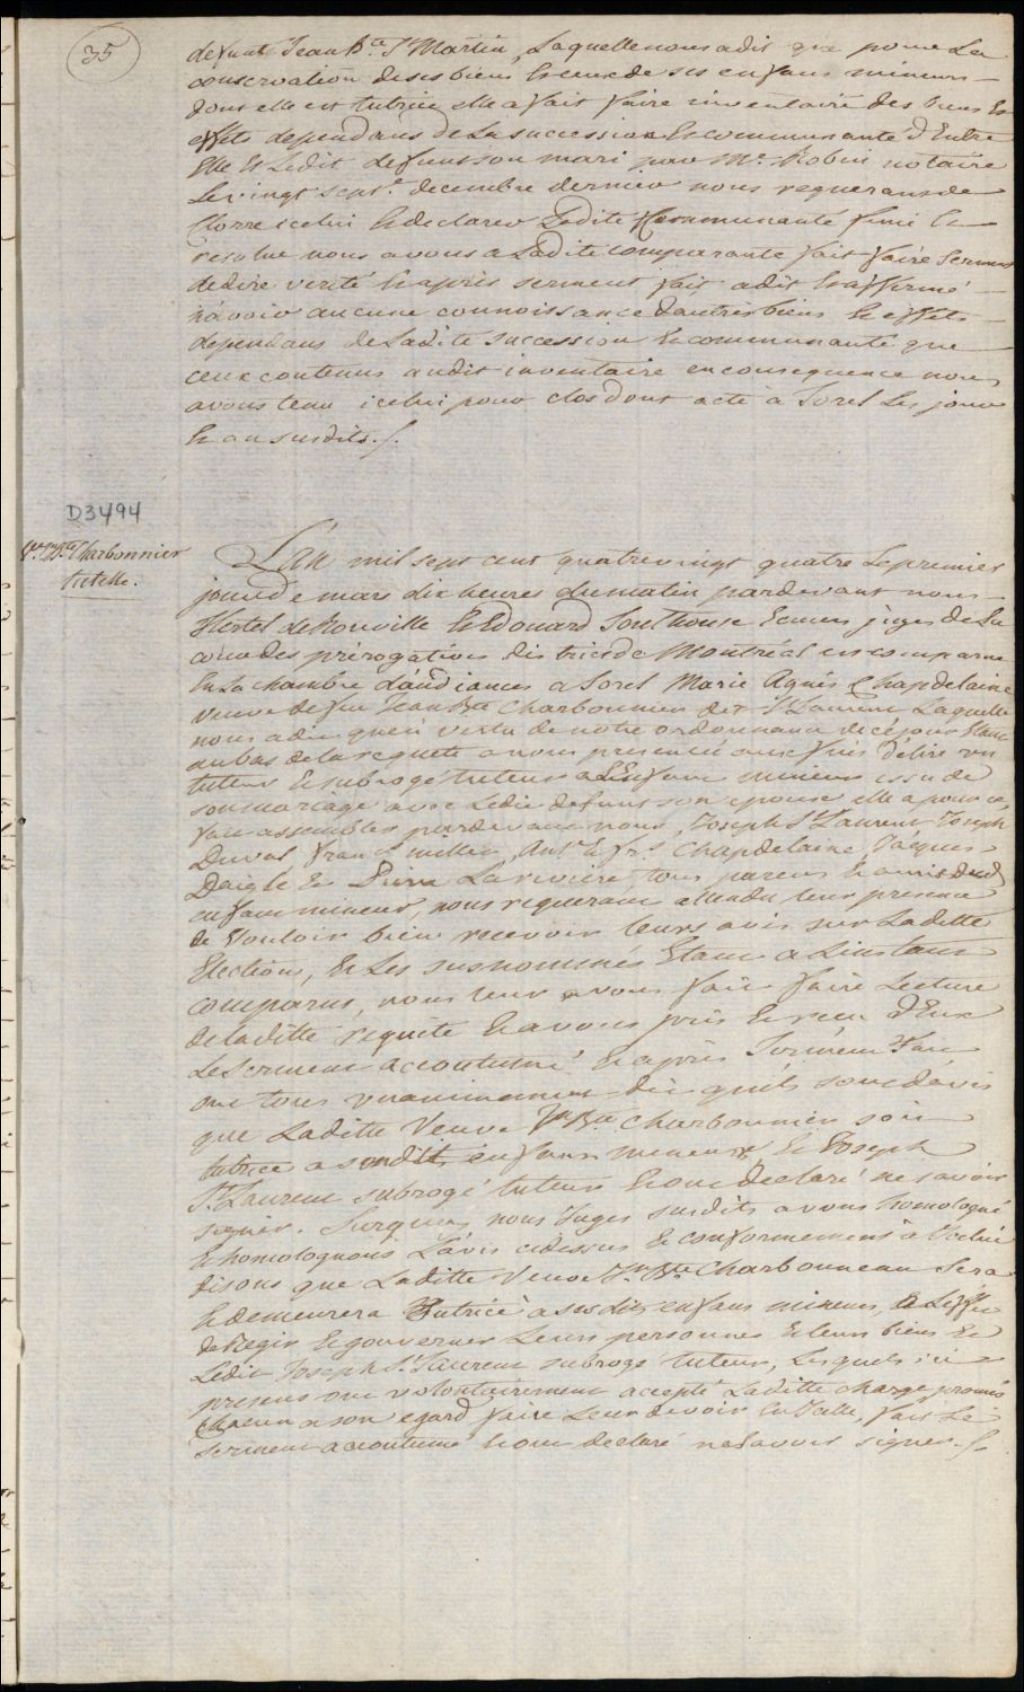 35
defunt Jean Bte St Martin, Laquelle nous a dit que pour La
conservation de ses biens & ceux de ses enfans mineurs
dont elle est tutrice elle a fait faire inventaire des biens &
effets dependans de La succession & communauté d'Entre
Elle & Ledit defunt son mari par Me. Robin notaire
Le vingt sept. decembre dernier nous requerans de
Clorre icelui & declarer Ladite Communauté finie &
resolue nous avons a Ladite comparante fait faire Serment
de dire verité & après serment fait a dit & affirmé
n'avoir aucune connoissance d'autres biens & effets
dependans de Ladite succession & communauté que
ceux contenus audit inventaire en consequence nous
avons tenu icelui pour clos dont acte à Sorel Les jour
& an susdits./.
D3494
Ve. J. Bte Charbonnier
tutelle.
L'an mil sept cent quatrevingt quatre Le premier
jour de mars dix heures du matin pardevant nous
Hertel de Rouville & Edouard Southouse Ecuiers juges de La
cour des prérogatives district de Montréal est comparue
En La chambre d'audiances a Sorel Marie Agnès Chapdelaine
veuve de feu Jean Bte Charbonnier dit St Laurent Laquelle
nous a dit qu'en vertu de notre ordonnance de ce jour Etant
au bas de la requete a nous presentée aux fins d'elire un
tuteur & subrogé tuteur a L'Enfant mineur issu de
son mariage avec Ledit defunt son epoux elle a pour ce
fait assembler pardevant nous, Joseph St Laurent Joseph
Duval Frans miller, Ante & frs. Chapdelaine, Jacques
Daigle & Pierre Lariviere, tous parens & amis dud
enfant mineur, nous requerant attendu leur presence
de Vouloir bien recevoir leurs avis sur Laditte
Election, & Les susnommés Etant a L'instant
comparus, nous leur avons fait faire Lecture
de laditte requête & avons pris & reçu d'Eux
Le Serment accoutumé & après Serment Fait
ont tous unanimement dit qu'ils sont d'avis
que Laditte Veuve Jn Bte Charbonnier soit
tutrice a sondit enfans mineurs & Joseph
St. Laurent subrogé tuteur & ont declaré ne savoir
signer. Surquoi nous Juges susdits avons homologué
& homologuons L'avis cidessus & conformement à Icelui
disons que Laditte Veuve Jn Bte Charbonneau Sera
& demeurera Tutrice à ses dits enfans mineurs, a L'effet
de Regir & gouverner Leurs personnes & leurs biens &
Ledit Joseph St. Laurent subrogé tuteur, Lesquels ici
presens ont volontairement accepté Laditte charge promis
chacun a son egard faire Leur devoir En Icelle, fait Le
serment accoutumé & ont declaré ne savoir signer./.